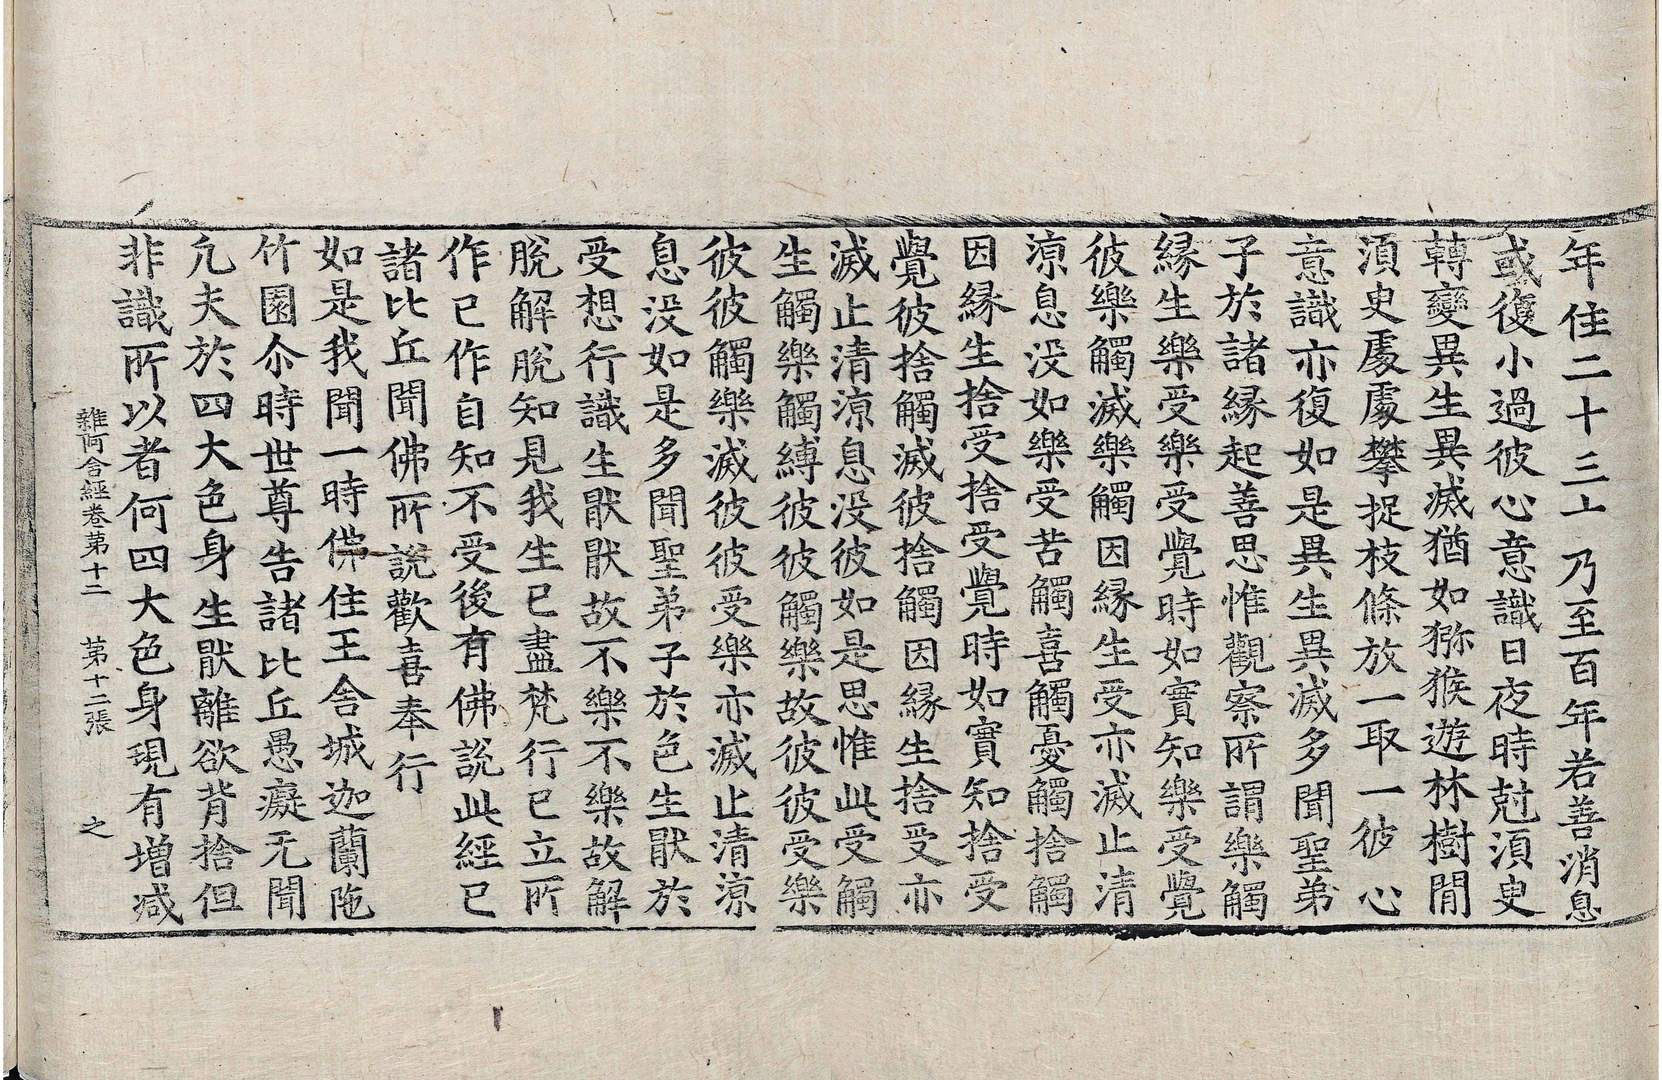 年住二十三十乃至百年若善消息
或復小過彼心意識日夜時尅湏臾
轉變異生異滅猶如獼猴遊林樹閒
湏臾處處攀捉枝條放一取一彼心
意識亦復如是異生異滅多聞聖弟
子於諸緣起善思惟觀察所謂樂觸
緣生樂受樂受覺時如實知樂受覺
彼樂觸滅樂觸因緣生受亦滅止清
涼息没如樂受苦觸喜觸憂觸捨觸
因緣生捨受捨受覺時如實知捨受
覺彼捨觸滅彼捨觸因緣生捨受亦
滅止清涼息没彼如是思惟此受觸
生觸樂觸縛彼彼觸樂故彼彼受樂
彼彼觸樂滅彼彼受樂亦滅止清涼
息没如是多聞聖弟子於色生猒於
受想行識生猒猒故不樂不樂故解
脫解脫知見我生已盡梵行已立所
作已作自知不受後有佛說此經已
諸比丘聞佛所說歡喜奉行
如是我聞一時佛住王舍城迦蘭陁
竹園尒時世尊告諸比丘愚癡无聞
凡夫於四大色身生猒離欲背捨但
非識所以者何四大色身現有增減
雜阿含經卷第十二 第十二張 之